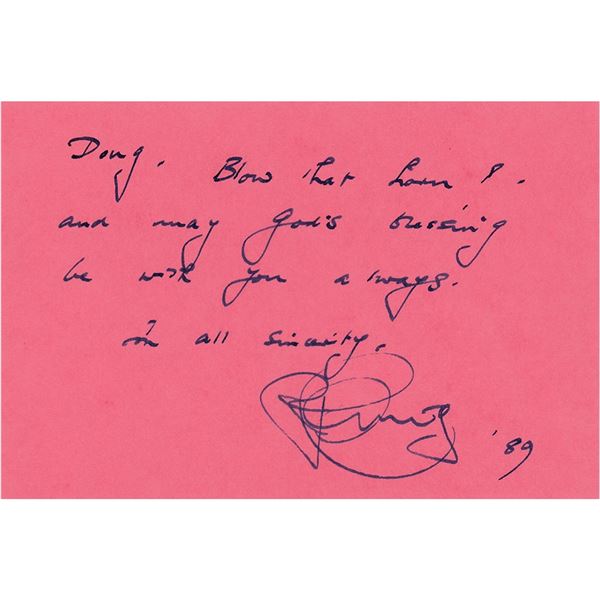 Doug. Blow that horn!.
and may God's blessing
be with you always.
in all sincerity,
'89